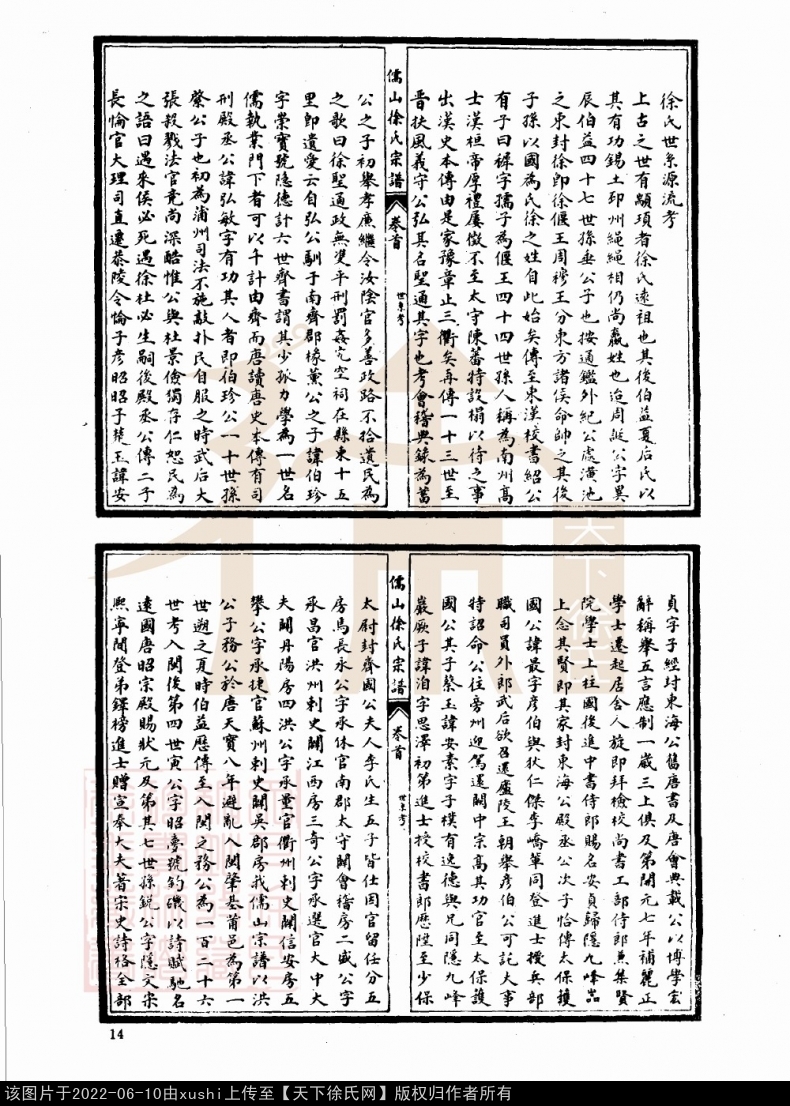 徐氏世系源流考
上古之世有顓頊者徐氏遠祖也其後伯益夏后氏以
其有功錫土邳州繩繩相仍尚嬴姓也迨周延公字異
辰伯益四十七世孫垂公子也按通鑑外紀公處潢池
之東封徐即徐偃王周穆王分東方諸侯命帥之其後
子孫以國為氏徐之姓自此始矣傳至東漢校書紹公
有子曰穉字孺子為偃王四十四世孫人稱為南州高
士漢桓帝厚禮屢徵不至太守陳蕃特設榻以待之事
出漢史本傳由是家豫章止三衢矣再傳一十三世至
晋扶風義守公弘其名聖通其字也考會稽典錄為萬
儒山徐氏宗譜
卷首
世系考
公之子初舉孝廉繼令汝陰官多善政路不拾遺民為
之歌曰徐聖通政無雙平刑罰姦宄空祠在縣東十五
里即遺愛云自弘公馴于南齊郡椽薰公之子諱伯珍
字榮寶號隱德計六世齊書謂其少孤力學為一世名
儒執業門下者可以千計由齊而唐讀唐史本傳有司
刑殿丞公諱弘敏字有功其人者即伯珍公一十世孫
縈公子也初為蒲州司法不施敲扑民自服之時武后大
張殺戮法官竟尚深酷惟公與杜景儉獨存仁恕民為
之語曰遇來侯必死遇徐杜必生嗣後殿丞公傳二子
長惀官大理司直遷恭陵令惀子彥昭昭子楚玉諱安
貞字子經封東海公舊唐書及唐會典載公以博學宏
辭稱舉五言應制一歲三上俱及第開元七年補麗正
學士遷起居舍人旋即拜檢校尚書工部侍郎兼集賢
院學士上柱國後進中書侍郎賜名安貞歸隱九峰嵒
上念其賢即其家封東海公殿丞公次子恰傳太保䕶
國公諱㝡字彥伯與狄仁傑李嶠革同登進士授兵部
職司員外郎武后欲召還廬陵王朝舉彥伯公可記大事
特詔命公往旁州迎駕還闕中宗高其功官至太保䕶
國公其子蔡玉諱安素字子樸有逸德與兄同隱九峰
巖厥子諱泊字思澤初第進士授校書郎歷陞至少保
儒山徐氏宗譜
卷首
世系考
太尉封齊國公夫人李氏生五子皆仕因官留任分五
房焉長永公字承休官南郡太守開會稽房二盛公字
承昌官洪州刺史開江西房三奇公字承選官大中大
夫開丹陽房四洪公字承量官衢州刺史開信安房五
攀公字承捷官蘇州刺史開吳郡房我儒山宗譜以洪
公子務公於唐天寶八年避亂入閩肇基莆邑為第一
世遡之夏時伯益歷傳至入閩之務公為一百二十六
世考入閩後第四世寅公字昭夢號釣磯以詩賦馳名
遠國唐昭宗殿賜狀元及第其七世孫銳公字隱文宋
熙寧間登弟鐸榜進士贈宣奉大夫著宋史詩格全部
14
该图片于2022-06-10由xushi上传至【天下徐氏网】版权归作者所有